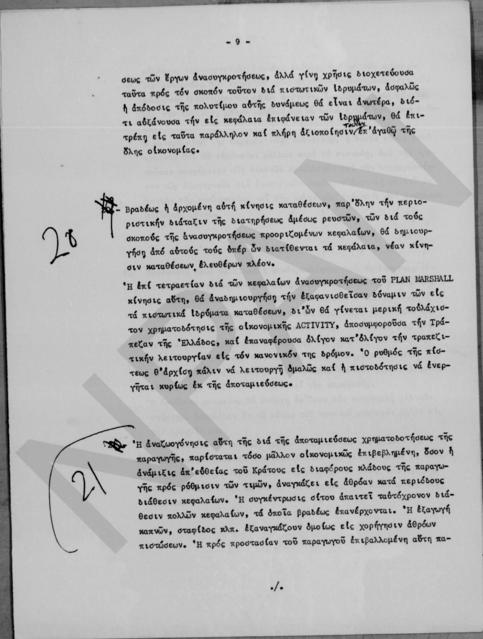 - 9 -
σεως τῶν ἔργων ἀνασυγκροτήσεως, ἀλλά γίνῃ χρῆσις διοχετεύουσα
ταῦτα πρός τόν σκοπόν τοῦτον διά πιστωτικῶν ἱδρυμάτων, ἀσφαλῶς
ἡ ἀπόδοσις τῆς πολυτίμου αὐτῆς δυνάμεως θά εἶναι ἀνωτέρα, διό-
τι αὐξάνουσα τήν εἰς κεφάλαια ἐπιφάνειαν τῶν ἱδρυμάτων, θά ἐπι-
τρέπῃ εἰς ταῦτα παράλληλον καί πλήρη ἀξιοποίησιν ἐπ'ἀγαθῷ τῆς
ὅλης οἰκονομίας.
20
- Βραδέως ἡ ἀρχομένη αὐτή κίνησις καταθέσεων, παρ'ὅλην τήν περιο-
ριστικήν διάταξιν τῆς διατηρήσεως ἀμέσως ρευστῶν, τῶν διά τούς
σκοπούς τῆς ἀνασυγκροτήσεως προοριζομένων κεφαλαίων, θά δημιουρ-
γήσῃ ἀπό αὐτούς τούς ὑπέρ ὧν διατίθενται τά κεφάλαια, νέαν κίνη-
σιν καταθέσεων, ἐλευθέρων πλέον.
Ἡ ἐπί τετραετίαν διά τῶν κεφαλαίων ἀνασυγκροτήσεως τοῦ PLAN MARSHALL
κίνησις αὕτη, θά ἀναδημιουργήσῃ τήν ἐξαφανισθεῖσαν δύναμιν τῶν εἰς
τά πιστωτικά ἱδρύματα καταθέσεων, δι'ὧν θά γίνεται μερική τοὐλάχισ-
τον χρηματοδότησις τῆς οἰκονομικῆς ACTIVITY, ἀποσυμφοροῦσα τήν Τρά-
πεζαν τῆς Ἑλλάδος, καί ἐπαναφέρουσα ὀλίγον κατ'ὀλίγον τήν τραπεζι-
τικήν λειτουργίαν εἰς τόν κανονικόν της δρόμον. Ὁ ρυθμός τῆς πίσ-
τεως θ'ἀρχίσῃ πάλιν νά λειτουργῇ ὁμαλῶς καί ἡ πιστοδότησις νά ἐνερ-
γῆται κυρίως ἐκ τῆς ἀποταμιεύσεως.
21
Ἡ ἀναζωογόνησις αὕτη τῆς διά τῆς ἀποταμιεύσεως χρηματοδοτήσεως τῆς
παραγωγῆς, παρίσταται τόσο μᾶλλον οἰκονομικῶς ἐπιβεβλημένη, ὅσον ἡ
ἀνάμιξις ἀπ'εὐθείας τοῦ Κράτους εἰς διαφόρους κλάδους τῆς παραγω-
γῆς πρός ρύθμισιν τῶν τιμῶν, ἀναγκάζει εἰς ἀθρόαν κατά περιόδους
διάθεσιν κεφαλαίων. Ἡ συγκέντρωσις σίτου ἀπαιτεῖ ταὐτόχρονον διά-
θεσιν πολλῶν κεφαλαίων, τά ὁποῖα βραδέως ἐπανέρχονται. Ἡ ἐξαγωγή
καπνῶν, σταφίδος κλπ. ἐξαναγκάζουν ὁμοίως εἰς χορήγησιν ἀθρόων
πιστώσεων. Ἡ πρός προστασίαν τοῦ παραγωγοῦ ἐπιβαλλομένη αὕτη πα-
./.